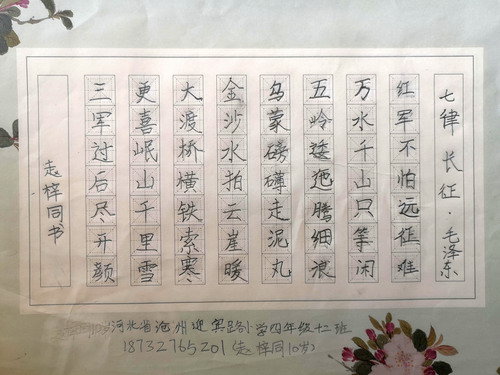 七律 长征·毛泽东
红军不怕远征难
万水千山只等闲
五岭逶迤腾细浪
乌蒙磅礴走泥丸
金沙水拍云崖暖
大渡桥横铁索寒
更喜岷山千里雪
三军过后尽开颜
赵梓同书
河北省沧州迎宾路小学四年级十二班
18732765201(赵梓同10岁)